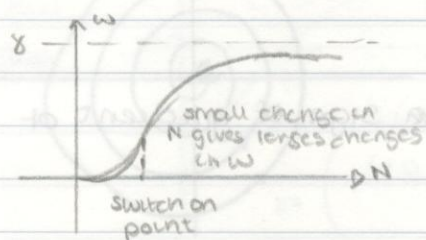 ω
γ
small change in
N gives larger changes
in ω
N
switch on
point